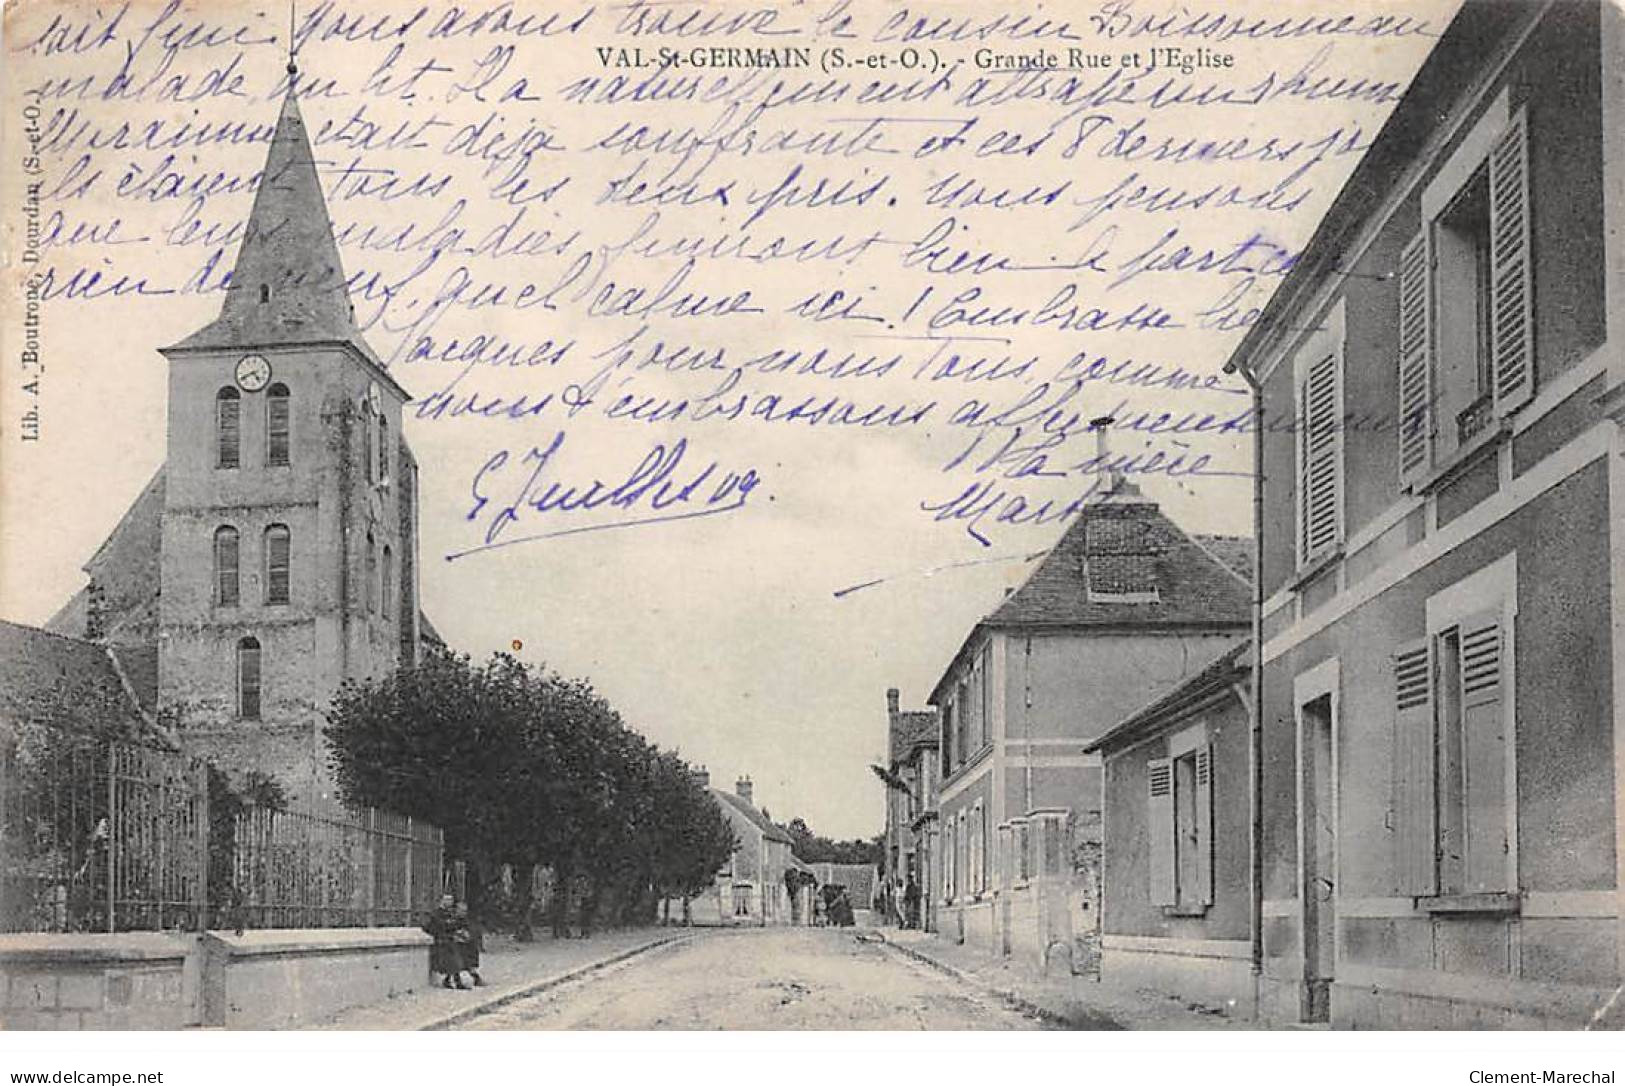 soit fini. Nous avons trouvé le cousin Boissonneau
VAL-St-GERMAIN (S.-et-O.). - Grande Rue et l'Eglise
malade au lit. Il a naturellement attrapé un rhume
était déjà souffrante et ces 8 derniers jo
ils étaient tous les deux pris. Nous pensons
que leurs maladies finiront bien. A part ca
rien de neuf, quel calme ici ! Embrasse bien
Jacques pour nous tous, comme
nous t'embrassons affectueusement
Ta mère
Mart
Lib. A. Boutroue, Dourdan (S.-et-O.)
delcampe.net
Clement-Marechal